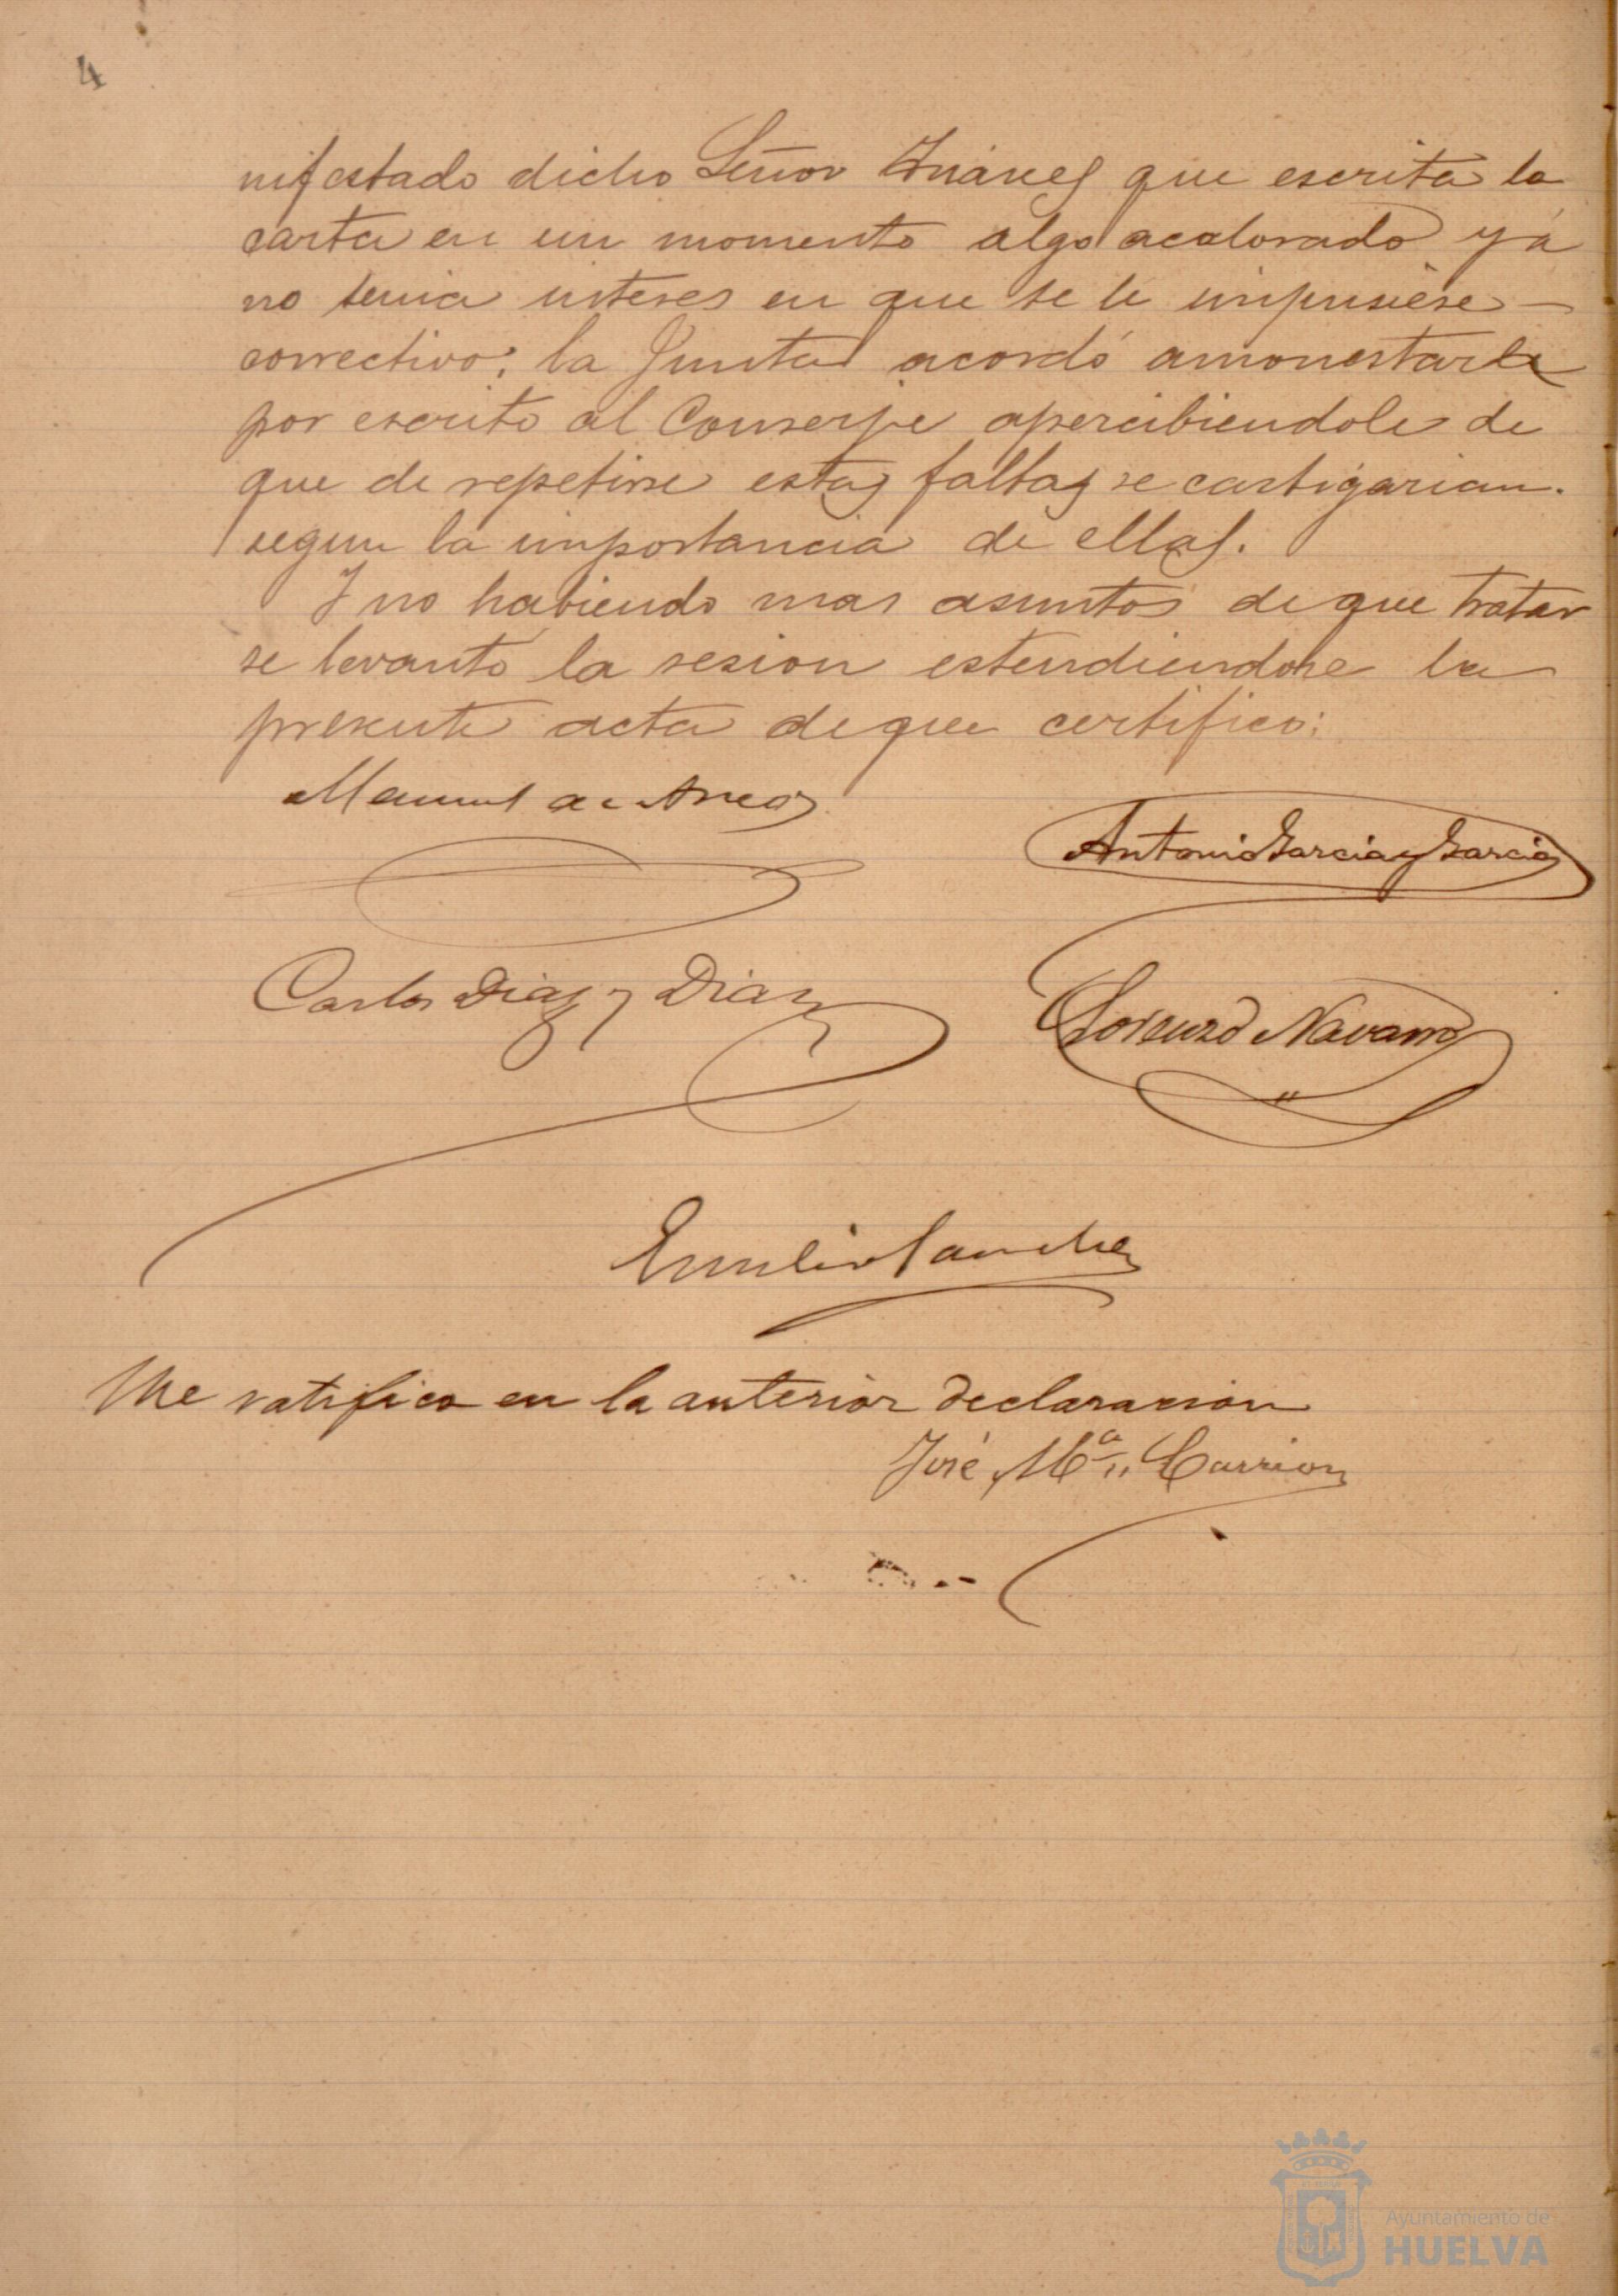 4
nifestado dicho Señor que escrita la
carta en un momento algo acalorado yá
no tenia interes en que se le impusiese —
correctivo; la Junta acordó amonestarle
por escrito al Conserje apercibiendole de
que de repetirse estas faltas se castigarian.
segun la importancia de ellas.
Y no habiendo mas asuntos de que tratar
se levantó la sesion estendiendose la
presente acta de que certifico:
Manuel de
Antonio Garcia y Garcia
Carlos Diaz y Diaz
Lorenzo Navarro
Emilio Sanchez
Me ratifico en la anterior declaracion
José Mª Carrion
Ayuntamiento de
HUELVA